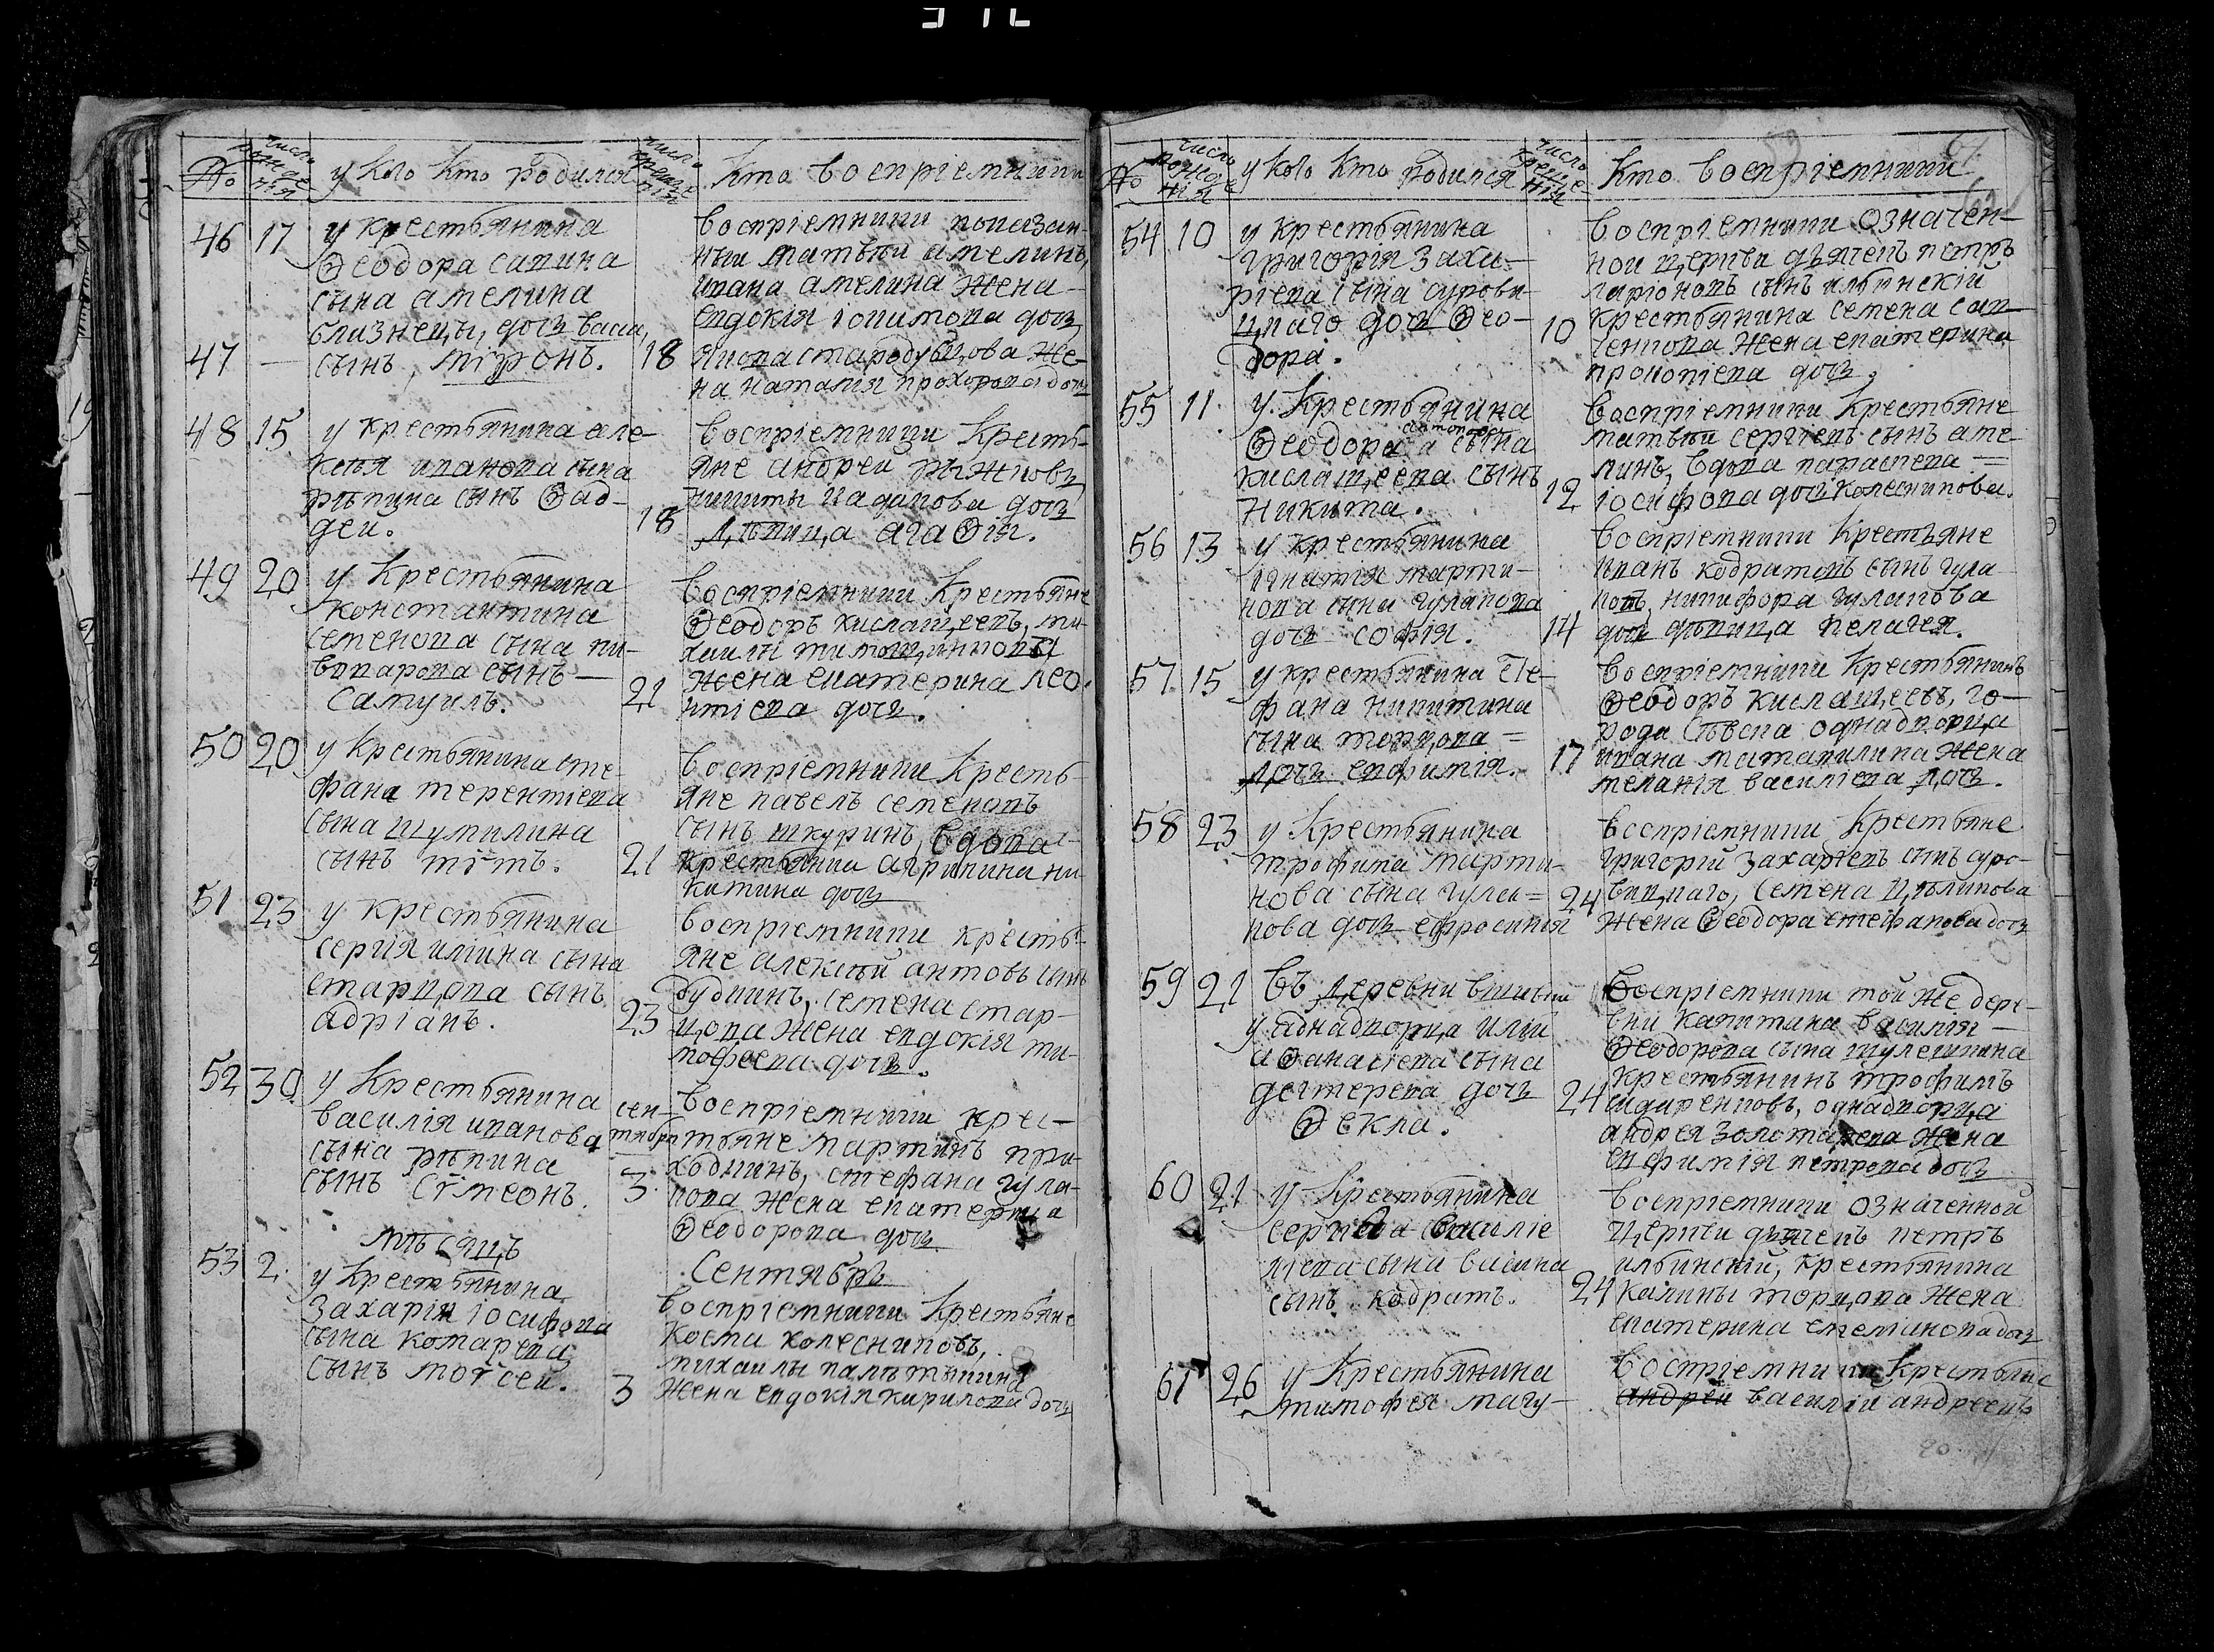 №
число рожде нія
у кого кто родился
число креще нія
кто воспріемники
46 17 у крестьянина
Ѳеодора савина
сына амелина
близнецы, дочь васса,
47 — сынъ, міронъ. 18
воспріемники показан-
ныи матвѣи амелинъ,
ивана амелина жена
евдокія іовимова дочь
якова стародубцова же-
на наталія прохорова дочь
48 15 у крестьянина але-
ксѣя иванова сына
рѣпина сынъ Ѳад-
деи. 18
воспріемницы кресть-
яне андреи рыжковъ
никиты кадацкова дочь
дѣвица агаѲія.
49 20 у крестьянина
константина
семенова сына пи-
воварова сынъ —
самуилъ. 21
воспріемники крестьяне
Ѳеодоръ кислащеевъ, ми-
хаилы
жена екатерина лео-
нтіева дочь.
50 20 у крестьянина сте-
фана терентіева
сына шумилина
сынъ тітъ. 21
воспріемники кресть-
яне павелъ семеновъ
сынъ шкуринъ, вдова
крестьянка агрипина ни
китина дочь
51 23 у крестьянина
сергія иліина сына
старцова сынъ
адріанъ. 23
воспріемники кресть-
яне алексѣй антовъ сынъ
будкинъ, семена стар-
цова жена евдокія ти-
мофеева дочь.
52 30 у крестьянина
василія иванова
сына рѣпина
сынъ сѵмеонъ.
сен-
тября
3
воспріемники крес-
тьяне мартинъ при-
ходкинъ, стефана гула-
кова жена екатерина
Ѳеодорова дочь
мѣсяцъ
Сентябрь
53 2 у крестьянина
захарія іосифова
сына комарева
сынъ моѵсеи. 3
воспріемники крестьяне
косма колесниковъ,
михаилы
жена евдокія кирилова дочь
№
число рожде нія
у кого кто родился
число креще нія
кто воспріемники
54 10 у крестьянина
григорія заха-
ріева сына сурови-
цкаго дочь Ѳео-
дора. 10
воспріемники означен-
нои церкви дьячекъ петръ
ларіоновъ сынъ ильинскій
крестьянина семена сав
ченкова жена екатерина
прокопіева дочь,
55 11 у крестьянина
антонова
Ѳеодора сына
кислащеева сынъ
никита. 12
воспріемники крестьяне
матвѣи сергіевъ сынъ аме-
линъ, вдова параскева =
іосифова дочь колесникова.
56 13 у крестьянина
ігнатія марти-
нова сына гулакова
дочь софія. 14
воспріемники крестьяне
иванъ кодратовъ сынъ гула-
ковъ, никифора гулакова
дочь дѣвица пелагея.
57 15 у крестьянина сте-
фана никитина
сына торцова =
дочь евфимія. 17
воспріемники крестьянинъ
Ѳеодоръ кислащеевъ, го-
рода Ѣвска однадворца
ивана матавилина жена
меланія василіева дочь.
58 23 у крестьянина
трофима марти-
нова сына гула=
кова дочь ефросинія 24
воспріемники крестьяне
григорій захаріевъ сынъ суро-
вицкаго, семена цѣликова
жена Ѳеодора стефанова дочь
59 21 въ деревни
у аднадворца иліи
аѲанасіева сына
дегтерева дочь
Ѳекла. 24
воспріемники той же дере-
вни капитана василія —
Ѳеодорова сына шулешкина
крестьянинъ трофимъ
сидаренковъ, однадворца
андрея золотарева жена
евфимія петрова дочь
60 21 у крестьянина
василіе
ліева сына васина
сынъ кодратъ. 24
воспріемники означенной
церкви дьячекъ петръ
ильинскій, крестьянина
калины торцова жена
екатерина емеліанова дочь
61 26 у крестьянина
тимофея магу-
воспріемники крестьяне
андреи василіи андреевъ